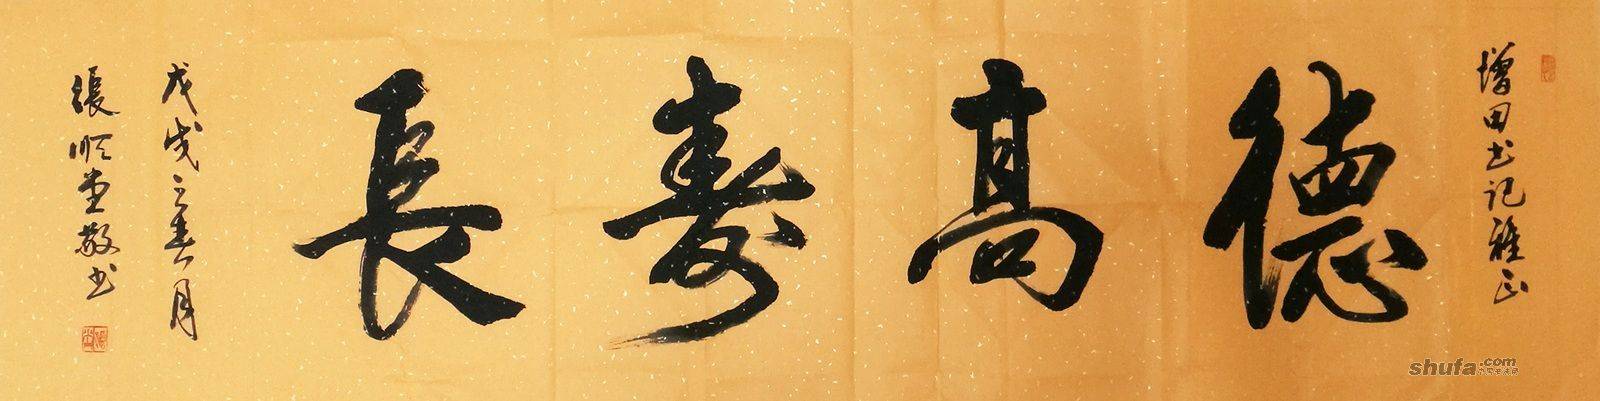 增田书记雅正
德高壽長
戊戌之春月
張順堂敬书
shufa.com